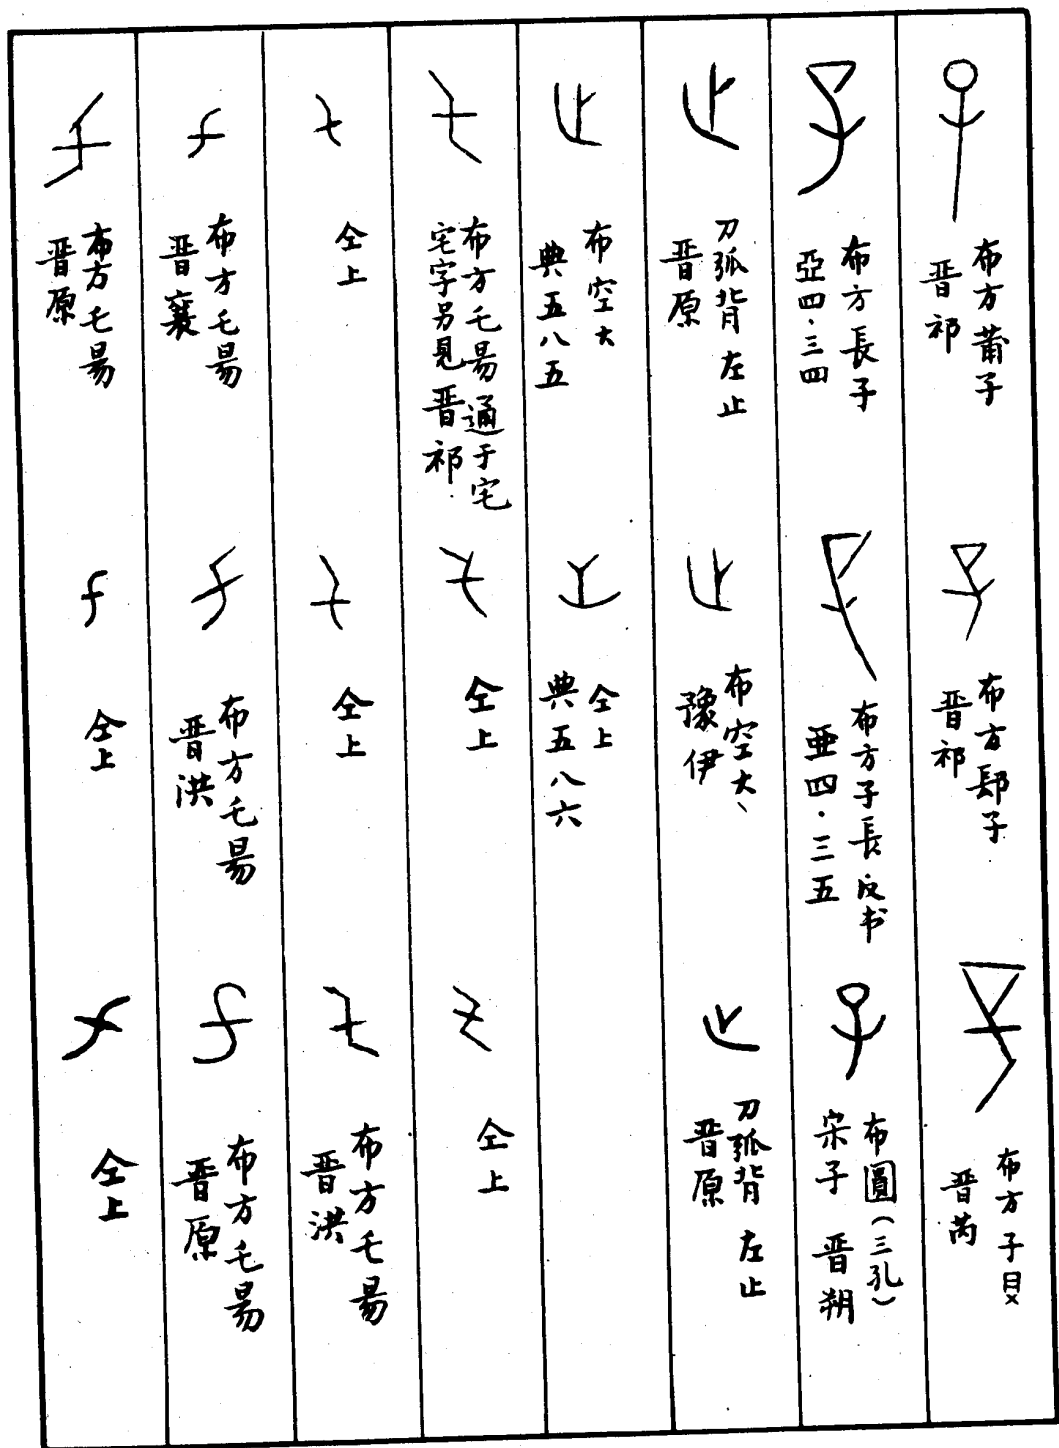 布方莆子
晋祁
布方郚子
晋祁
布方子㫐
晋芮
布方長子
亞四·三四
布方子長反书
亜四·三五
布圓（三孔）
宋子 晋朔
刀弧背 左止
晋原
布空大、
豫伊
刀弧背 左止
晋原
布空大
典五八五
仝上
典五八六
布方乇昜通于宅
宅字另見 晋祁
仝上
仝上
仝上
仝上
布方乇昜
晋洪
布方乇昜
晋襄
布方乇昜
晋洪
布方乇昜
晋原
布方乇昜
晋原
仝上
仝上